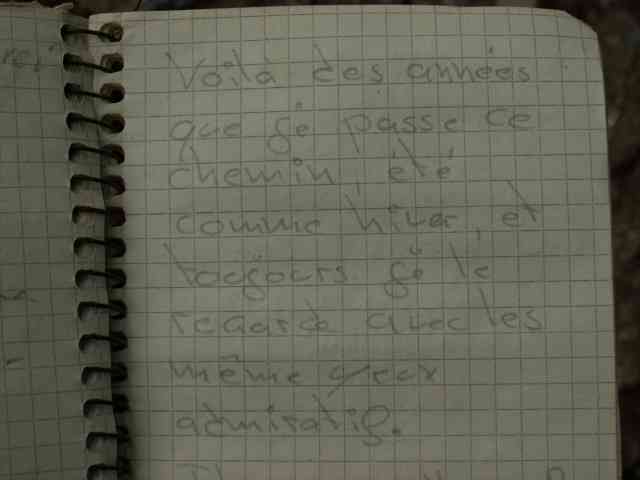 Voilà des années
que je passe ce
chemin, été
comme hiver, et
toujours je le
regarde avec les
même yeux
admiratif.